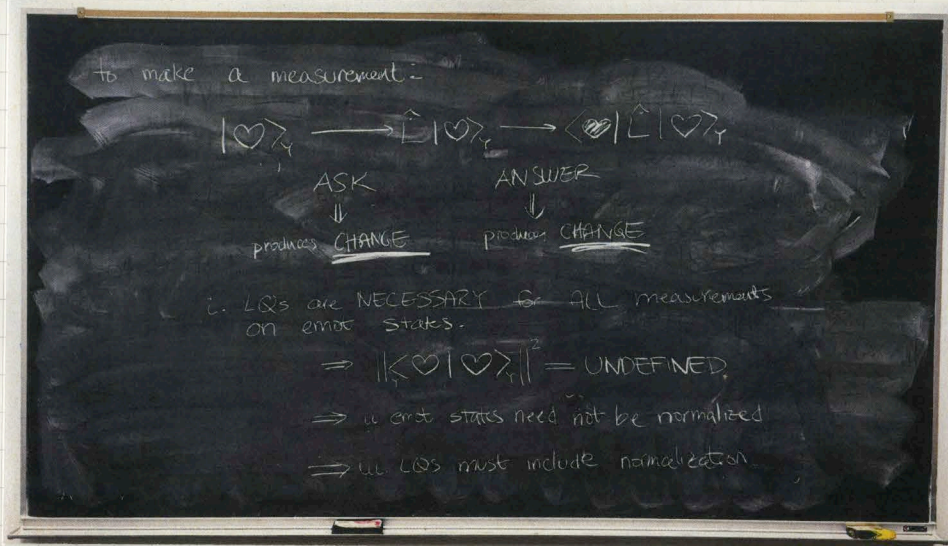 to make a measurement:
|♡⟩Y ⟶ L̂|♡⟩Y ⟶ ⟨♥|L̂|♡⟩Y
ASK ANSWER
⇓ ⇓
produces CHANGE produces CHANGE
i. LQs are NECESSARY for ALL measurements
on emot states.
⇒ ||Y⟨♡|♡⟩Y||² = UNDEFINED.
⇒ ii emot states need not be normalized
⇒ iii LQs must include normalization.